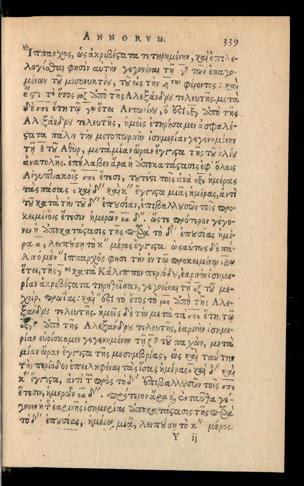 ANNORVM. 339
Ἵππαρχος, ὡς ἀκριβέστατα τετηρημένην, καὶ ἐπιλε-
λογίσθαι φησὶν αὐτὴν γεγονέναι τῇ γ τῶν ἐπαγο-
μένων τοῦ μεσονυκτίου, τοῦ εἰς τὴν δην φέροντος: καὶ
ἔστι τὸ ἔτος ροη ἀπὸ τῆς Ἀλεξάνδρου τελευτῆς. μετὰ
δὲ σπε ἔτη τῷ γῳ ἔτει Ἀντωνίου, ὅ ἐστι υξγ ἀπὸ τῆς
Ἀλεξάνδρου τελευτῆς, ἡμεῖς ἐτηρήσαμεν ἀσφαλέ-
στατα πάλιν τὴν μετοπωρινὴν ἰσημερίαν γεγενημένην
τῇ θ τοῦ Ἀθύρ, μετὰ μίαν ὥραν ἔγγιστα τῆς τοῦ ἡλίου
ἀνατολῆς. ἐπέλαβεν ἄρα ἡ ἀποκατάστασις ἐφ' ὅλοις
Αἰγυπτιακοῖς σπε ἔτεσι, τουτέστι τοῖς ἀνὰ τξε ἡμέρας
τὰς πάσας ο καὶ δ" καὶ κ" ἔγγιστα μιᾶς ἡμέρας, ἀντὶ
τῶν κατὰ τὴν τοῦ δ" ἐπουσίαν, ἐπιβαλλουσῶν τοῖς προ-
κειμένοις ἔτεσιν ἡμερῶν οα δ". ὥστε πρότερον γέγο-
νεν ἡ ἀποκατάστασις τῆς παρὰ τὸ δ" ἐπουσίας ἡμέ-
ρᾳ α, λειπούσῃ τὸ κ" μέρος ἔγγιστα. ὡσαύτως δὲ πά-
λιν ὁ μὲν Ἵππαρχός φησι τὴν ἐν τῷ προκειμένῳ λβ
ἔτει, τῆς γης κατὰ Κάλιππον περιόδου, ἐαρινὴν ἰσημε-
ρίαν ἀκριβέστατα τηρηθεῖσαν, γεγονέναι τῇ κζ τοῦ με-
χείρ, πρωΐας: καὶ ἔστι τὸ ἔτος τὸ ροη ἀπὸ τῆς Ἀλε-
ξάνδρου τελευτῆς. ἡμεῖς δὲ τὴν μετὰ τὰ σπε ἔτη τῷ
υξγ ἀπὸ τῆς Ἀλεξάνδρου τελευτῆς, ἐαρινὴν ἰσημε-
ρίαν εὑρίσκομεν γεγενημένην τῇ ζ τοῦ παχών, μετὰ
μίαν ὥραν ἔγγιστα τῆς μεσημβρίας, ὡς καὶ ταύτην
τὴν περίοδον ἐπειληφέναι τὰς ἴσας ἡμέρας ο καὶ δ" καὶ
κ" ἔγγιστα, ἀντὶ τῶν πρὸς τὸ δ" ἐπιβαλλουσῶν τοῖς σπε
ἔτεσιν, ἡμερῶν οα δ". πρότερον ἄρα ἡ ἐνταῦθα γέ-
γονεν ἡ τῆς ἐαρινῆς ἰσημερίας ἀποκατάστασις τῆς παρὰ
τὸ δ" ἐπουσίας, ἡμέρᾳ μιᾷ, λειπούσῃ τὸ κ" μέρος.
Y ij